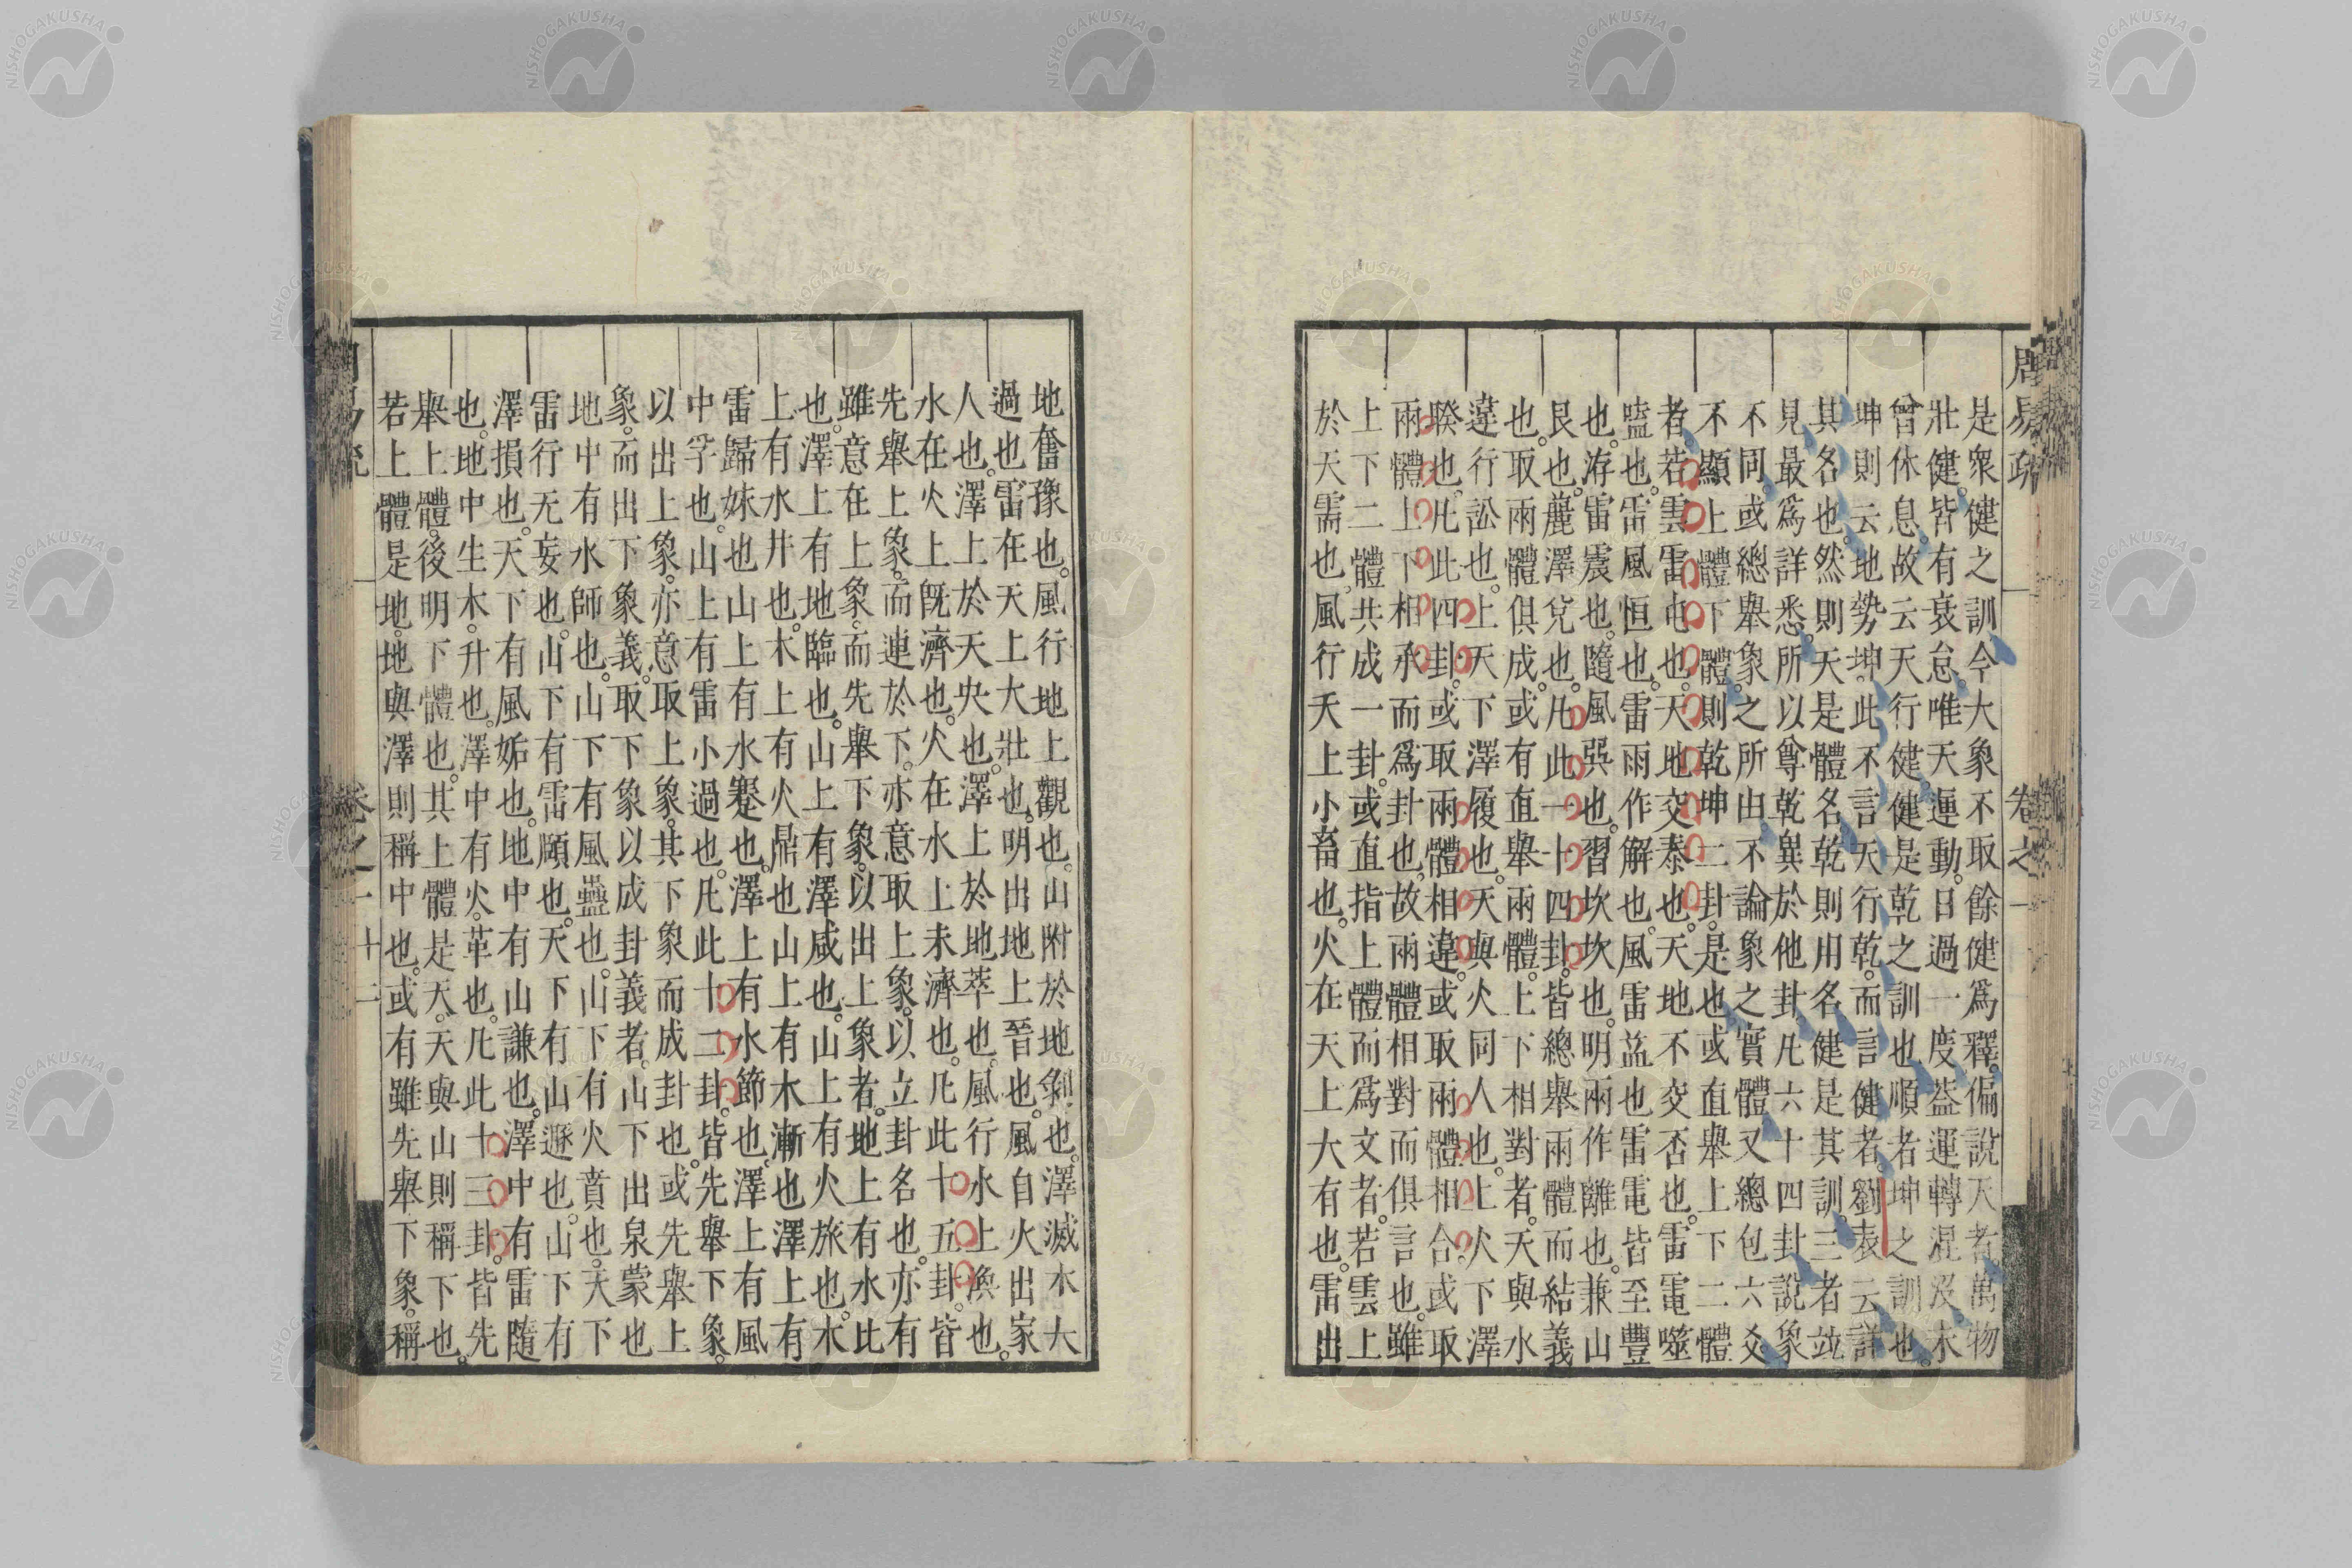 周易疏　卷之一
是衆健之訓今大象不取餘健爲釋。偏說天者萬物
壯健。皆有衰怠。唯天運動。日過一度葢運轉混沒未
曾休息。故云天行健健是乾之訓也順者坤之訓也。
坤則云地勢坤。此不言天行乾。而言健者。劉表云詳
其名也。然則天是體名乾則用名健是其訓。三者竝
見最爲詳悉。所以尊乾異於他卦凡六十四卦說象
不同。或總舉象之所由不論象之實體又總包六爻
不顯上體下體。則乾坤二卦。是也或直舉上下二體
者。若雲雷屯也。天地交泰也。天地不交否也。雷電噬
嗑也。雷風恒也。雷雨作解也。風雷益也雷電皆至豐
也。洊雷震也。隨風巽也。習坎坎也。明兩作離也。兼山
艮也。麗澤兌也。凡此一十四卦。皆總舉兩體而結義
也。取兩體俱成。或有直舉兩體。上下相對者。天與水
違行訟也。上天下澤履也。天與火同人也。上火下澤
睽也。凡此四卦。或取兩體相違。或取兩體相合。或取
兩體上下相承而爲卦也。故兩體相對而俱言也。雖
上下二體共成一卦。或直指上體而爲文者。若雲上
於天需也。風行天上小畜也。火在天上大有也。雷出
地奮豫也。風行地上觀也。山附於地剝也。澤滅木大
過也。雷在天上大壯也。明出地上晉也。風自火出家
人也。澤上於天央也。澤上於地萃也。風行水上渙也。
水在火上既濟也。火在水上未濟也。凡此十五卦。皆
先舉上象。而連於下。亦意取上象。以立卦名也。亦有
雖意在上象。而先舉下象。以出上象者。地上有水比
也。澤上有地臨也。山上有澤咸也。山上有火旅也。木
上有水井也。木上有火鼎也山上有木漸也澤上有
雷歸妹也山上有水蹇也。澤上有水節也。澤上有風
中孚也。山上有雷小過也。凡此十二卦。皆先舉下象。
以出上象。亦意取上象。其下象而成卦也。或先舉上
象。而出下象義。取下象以成卦義者。山下出泉蒙也
地中有水師也。山下有風蠱也。山下有火賁也。天下
雷行无妄也。山下有雷頤也。天下有山遯也。山下有
澤損也。天下有風姤也。地中有山謙也。澤中有雷隨
也。地中生木升也。澤中有火革也。凡此十三卦。皆先
舉上體。後明下體也。其上體是天。天與山則稱下也。
若上體是地。地與澤則稱中也。或有雖先舉下象。稱
卷之一　十二